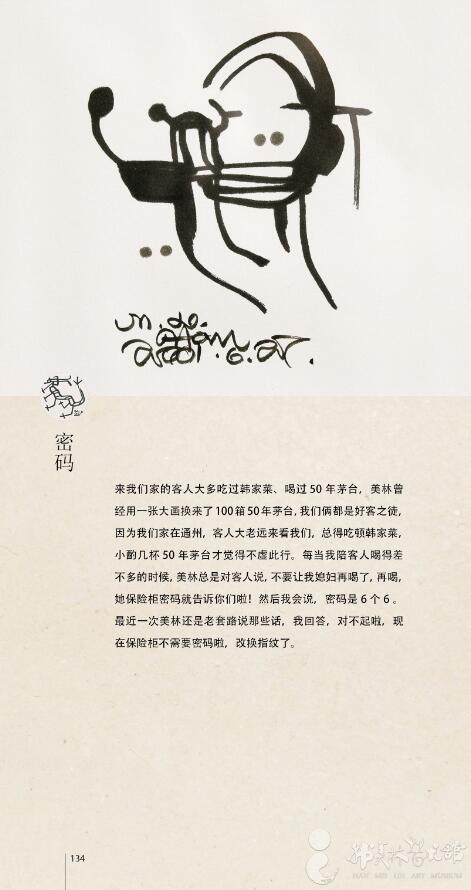 密码
来我们家的客人大多吃过韩家菜、喝过50年茅台，美林曾
经用一张大画换来了100箱50年茅台，我们俩都是好客之徒，
因为我们家在通州，客人大老远来看我们，总得吃顿韩家菜，
小酌几杯50年茅台才觉得不虚此行。每当我陪客人喝得差
不多的时候，美林总是对客人说，不要让我媳妇再喝了，再喝，
她保险柜密码就告诉你们啦！然后我会说，密码是6个6。
最近一次美林还是老套路说那些话，我回答，对不起啦，现
在保险柜不需要密码啦，改换指纹了。
134
韩美林艺术馆
HAN MEI LIN ART MUSEUM